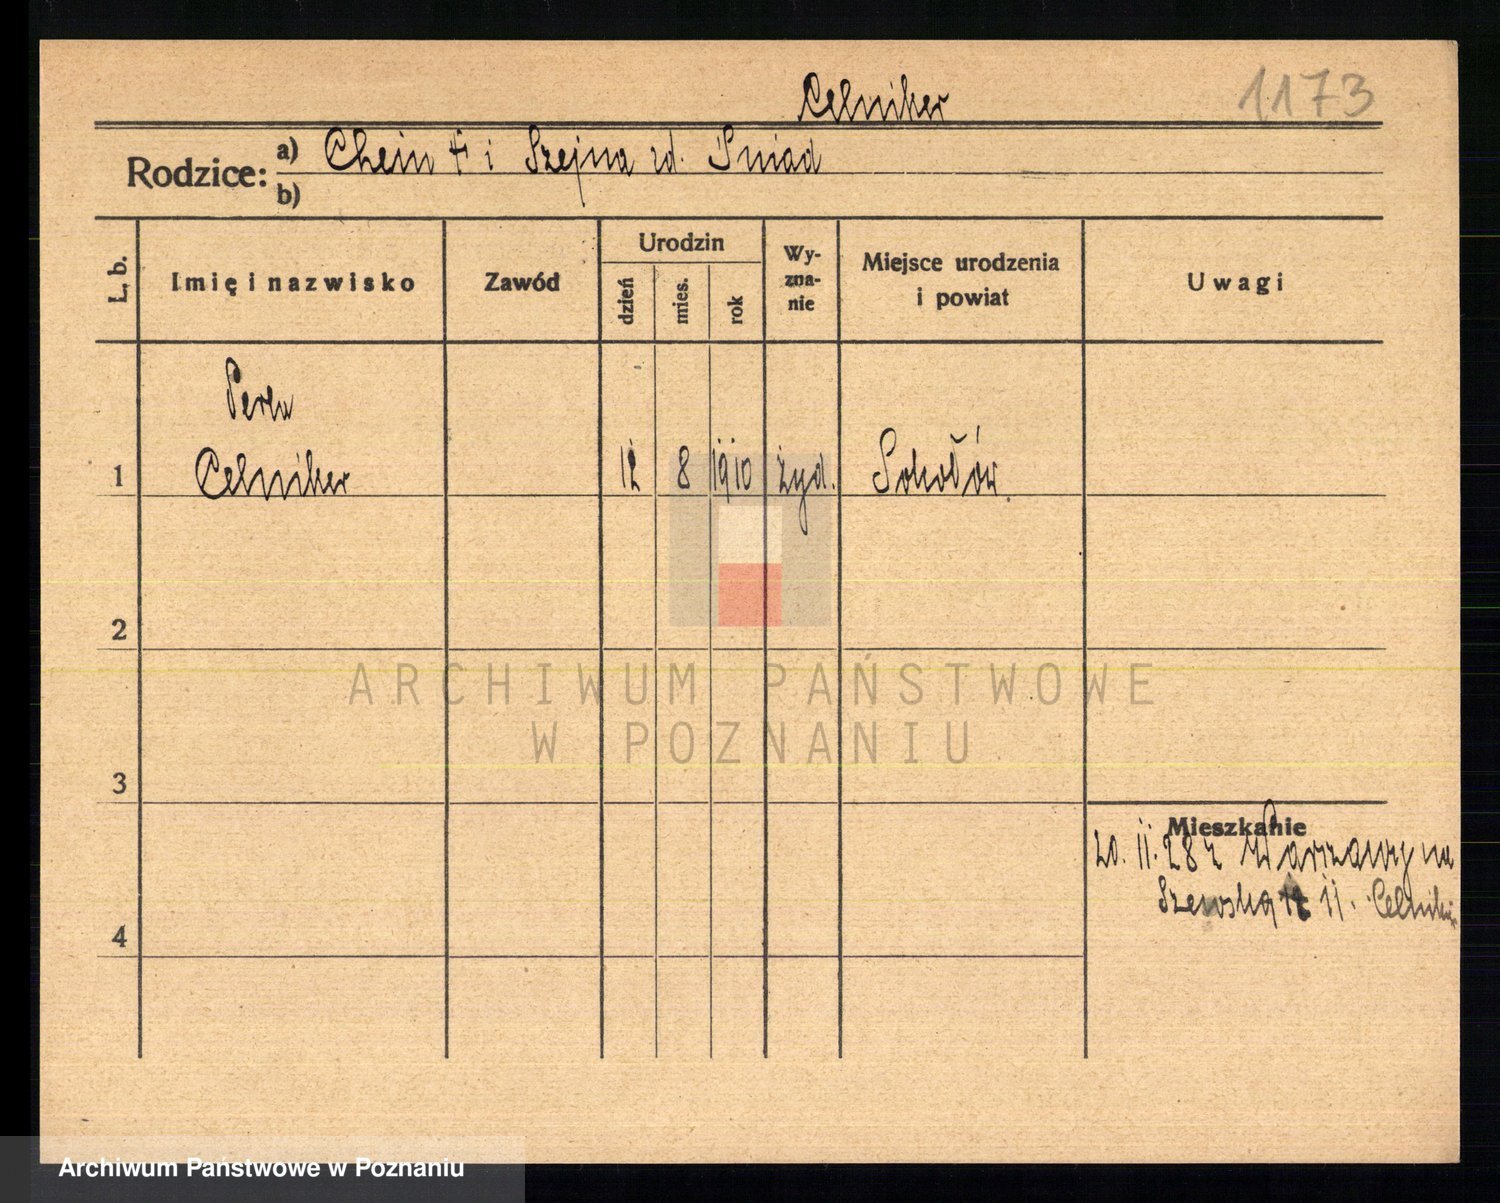 Celniker
1173
Rodzice: a) Chein † i Szejna zd. Śniad
b)
L. b.
Imię i nazwisko
Zawód
Urodzin
dzień
mies.
rok
Wy-
zna-
nie
Miejsce urodzenia
i powiat
Uwagi
Perla
1 Celniker 12 8 1910 żyd. Sokołów.
2
ARCHIWUM PAŃSTWOWE
W POZNANIU
3
Mieszkanie
20. 11. 28 z Warszawy na
Szewską 11. Celniker
4
Archiwum Państwowe w Poznaniu